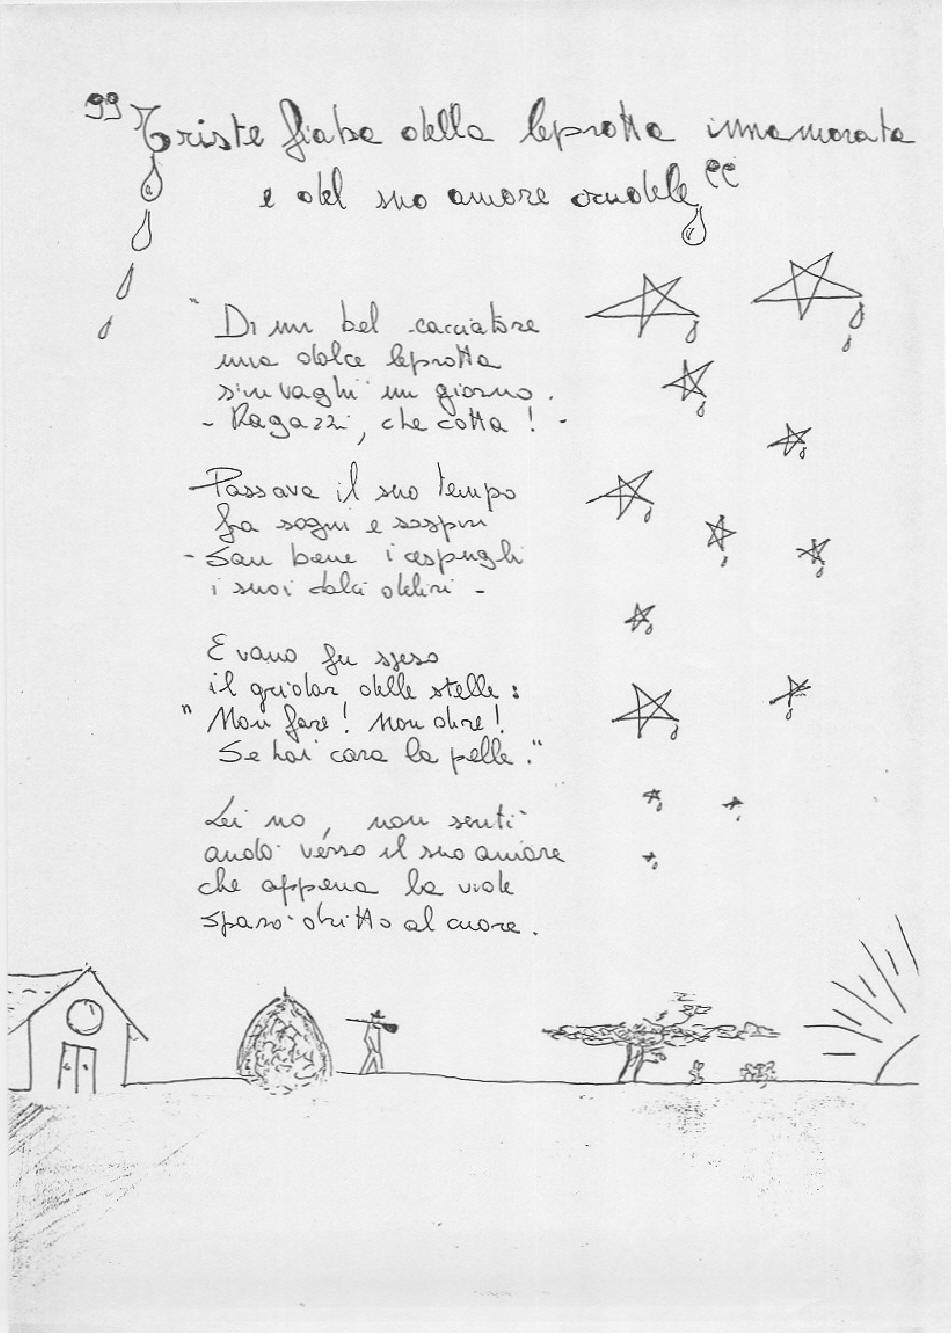 "Triste fiaba della leprotta innamorata
e del suo amore crudele"
"Di un bel cacciatore
una dolce leprotta
s'invaghi' un giorno.
- Ragazzi, che cotta! -
Passava il suo tempo
fra sogni e sospiri
- San bene i cespugli
i suoi dolci deliri -
E vano fu speso
il gridar delle stelle:
"Non fare! Non dire!
Se hai cara la pelle."
Lei no, non senti'
ando' verso il suo amore
che appena la vide
sparo' dritto al cuore.